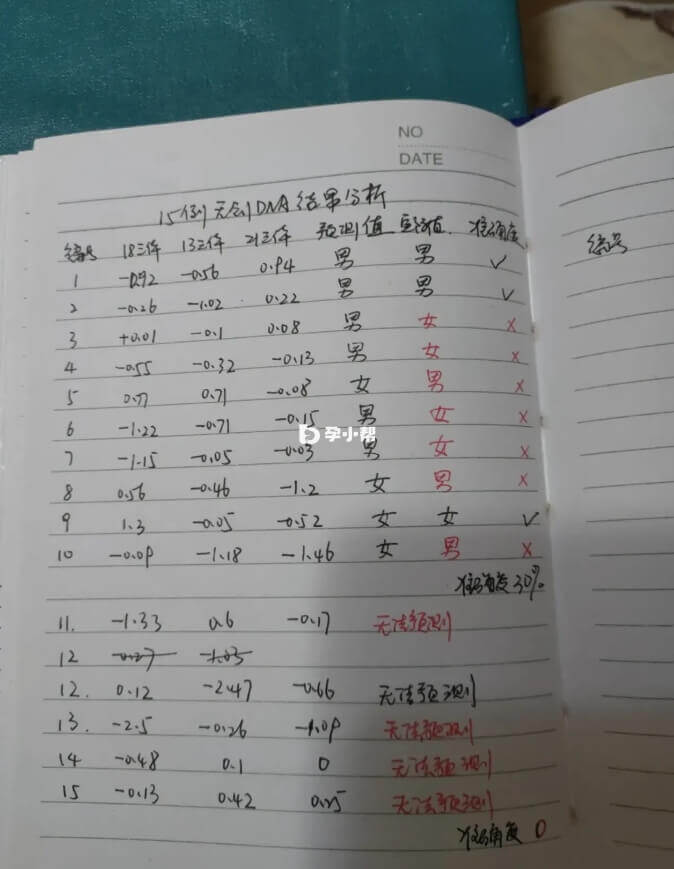 NO
DATE
15例无创DNA结果分析
编号 18三体 13三体 21三体 预测值 实际值 准确度
1 -0.92 -0.56 0.94 男 男 ✓
2 -0.26 -1.02 0.22 男 男 ✓
3 +0.01 -0.1 0.08 男 女 ×
4 -0.55 -0.32 -0.13 男 女 ×
5 0.77 0.71 -0.08 女 男 ×
6 -1.22 -0.71 -0.15 男 女 ×
孕小帮
7 -1.15 -0.05 -0.03 男 女 ×
8 0.56 -0.46 -1.2 女 男 ×
9 1.3 -0.05 -0.52 女 女 ✓
10 -0.09 -1.18 -1.46 女 男 ×
准确度30%
11. -1.33 0.6 -0.17 无法预测
12 -0.27 -1.03
12. 0.12 -2.47 -0.66 无法预测
13. -2.5 -0.26 -1.09 无法预测
14 -0.48 0.1 0 无法预测
15 -0.13 0.42 无法预测
准确度 0
编号